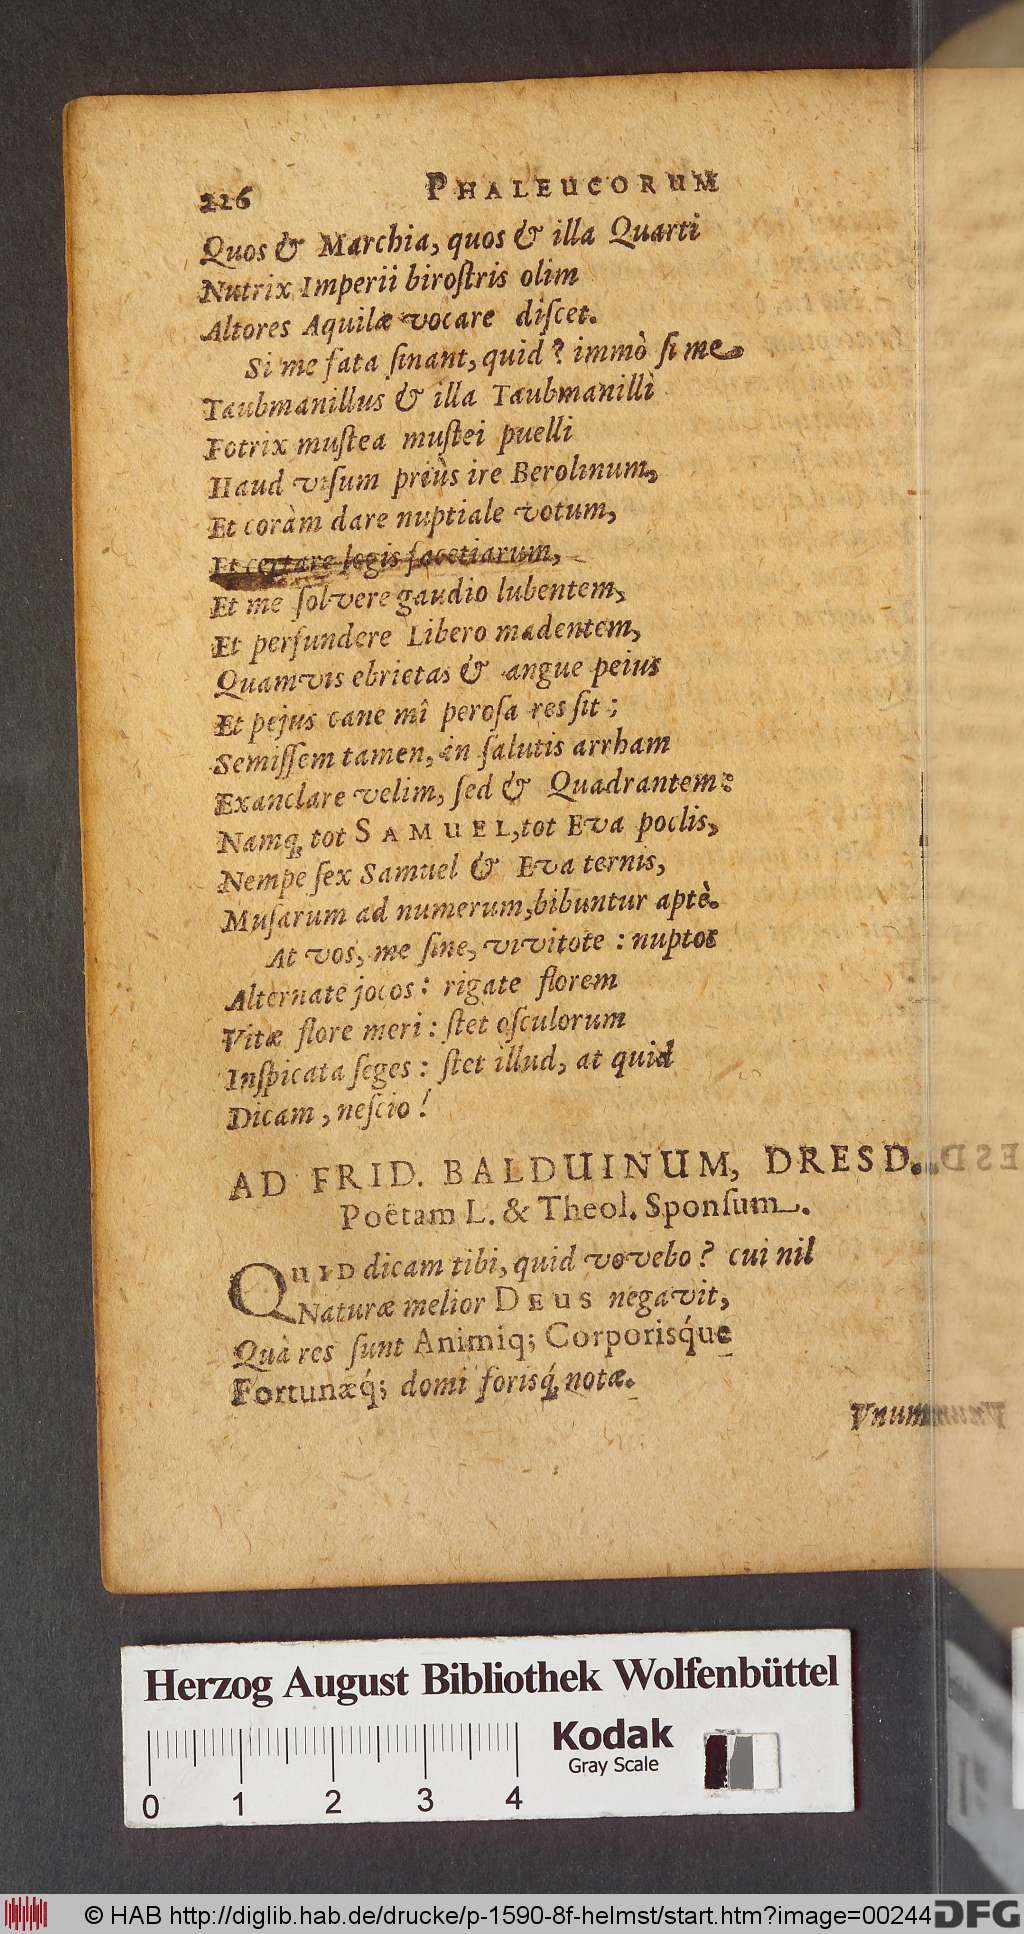 226 PHALEUCORUM
Quos & Marchia, quos & illa Quarti
Nutrix Imperii biroſtris olim
Altores Aquilæ vocare diſcet.
Si me fata ſinant, quid? immò ſi me
Taubmanillus & illa Taubmanilli
Fotrix muſtea muſtei puelli
Haud viſum priùs ire Berolinum,
Et coràm dare nuptiale votum,
Et certare legis facetiarum,
Et me ſolvere gaudio lubentem,
Et perfundere Libero madentem,
Quamvis ebrietas & angue peius
Et pejus cane mî peroſa res ſit;
Semiſſem tamen, in ſalutis arrham
Exanclare velim, ſed & Quadrantem:
Namq; tot SAMUEL, tot Eva poclis,
Nempe ſex Samuel & Eva ternis,
Muſarum ad numerum, bibuntur aptè.
At vos, me ſine, vivitote: nuptos
Alternate jocos: rigate florem
Vitæ flore meri: ſtet oſculorum
Inſpicata ſeges: ſtet illud, at quid
Dicam, neſcio!
AD FRID. BALDUINUM, DRESD.
Poëtam L. & Theol. Sponſum.
QUID dicam tibi, quid vovebo? cui nil
Naturæ melior DEUS negavit,
Quà res ſunt Animiq; Corporisq́ue
Fortunæq́; domi forisq́; notæ.
Vnum
Herzog August Bibliothek Wolfenbüttel
Kodak
Gray Scale
0 1 2 3 4
© HAB http://diglib.hab.de/drucke/p-1590-8f-helmst/start.htm?image=00244
DFG